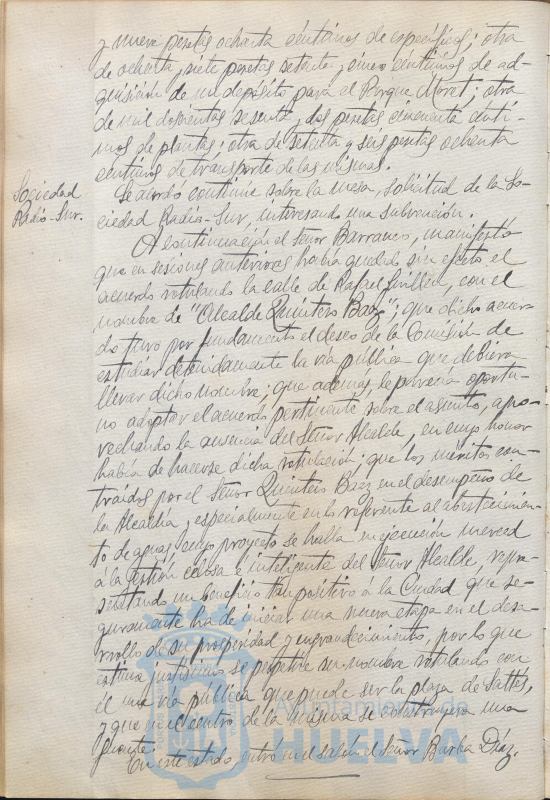 y nueve pesetas ochenta céntimos de específicos; otra
de ochenta y siete pesetas setenta y cinco céntimos de ad-
quisición de un depósito para el Parque Moret; otra
de mil doscientas sesenta y dos pesetas cincuenta cénti-
mos de plantas; otra de setenta y seis pesetas ochenta
céntimos de transporte de las mismas.
Sociedad
Radio-Sur.
Se acordó continúe sobre la mesa, solicitud de la So-
ciedad Radio-Sur, interesando una subvención.
A continuación el señor Barranco, manifestó
que en sesiones anteriores había quedado sin efecto el
acuerdo rotulando la calle de Rafael Guillén, con el
nombre de "Alcalde Quintero Báez"; que dicho acuer-
do tuvo por fundamento el deseo de la Comisión de
estudiar detenidamente la vía pública que debiera
llevar dicho nombre; que además, le parecía oportu-
no adoptar el acuerdo pertinente sobre el asunto, apro-
vechando la ausencia del Señor Alcalde, en cuyo honor
había de hacerse dicha rotulación; que los méritos con-
traídos por el Señor Quintero Báez en el desempeño de
la Alcaldía y especialmente en lo referente al abastecimien-
to de aguas, cuyo proyecto se halla en ejecución merced
á la gestión celosa e inteligente del Señor Alcalde, repre-
sentando un beneficio tan positivo á la Ciudad que se-
guramente ha de iniciar una nueva etapa en el desa-
rrollo de su prosperidad y engrandecimiento, por lo que
estima justísimo se perpetúe su nombre rotulando con
él una vía pública que puede ser la plaza de Saltés,
y que en el centro de la misma se construyera una
fuente.
En este estado, entró en el salón el señor Barba Díaz.
Ayuntamiento de
HUELVA